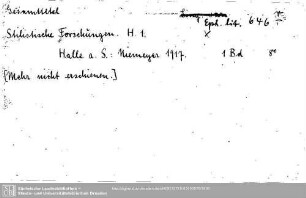 Gesamttitel
Eph. lit. 646
Stilistische Forschungen. H. 1.
Halle a. S.: Niemeyer 1917. 1 Bd 8°
[Mehr nicht erschienen.]
Sächsische Landesbibliothek -
Staats- und Universitätsbibliothek Dresden